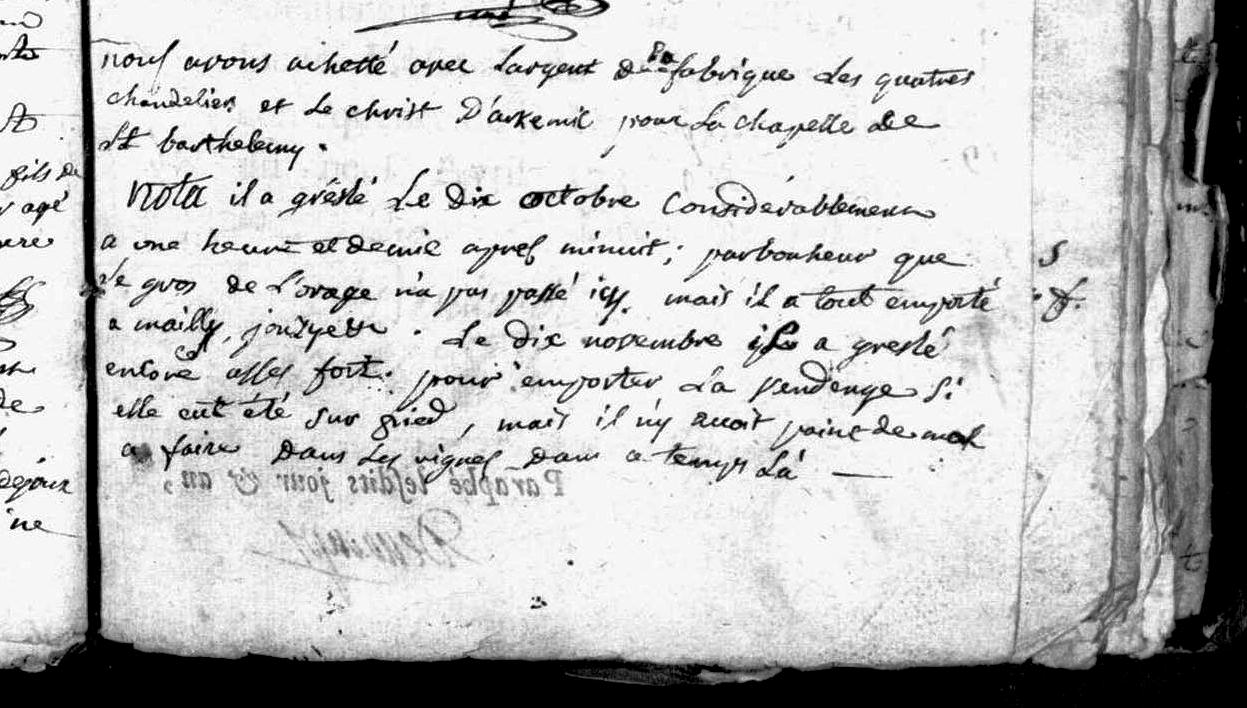 nous avons achetté avec Largent de la fabrique Les quatres
chandeliers et Le christ D'arkemie pour La chapelle de
St barthelemy.
nota il a gréslé Le dix octobre Considérablement
a une heure et demie apres minuit; parbonheur que
Le gros de L'orage n'a pas passé icy. mais il a tout emporté
a mailly, . Le dix novembre il a greslé
encore asses fort. pour emporter La vendenge si
elle eut été sur pied, mais il n'y avoit point de mal
a faire Dans Les vignes Dans ce temps Là —
Paraphé lesdits jour & an,
fils de
agé
de